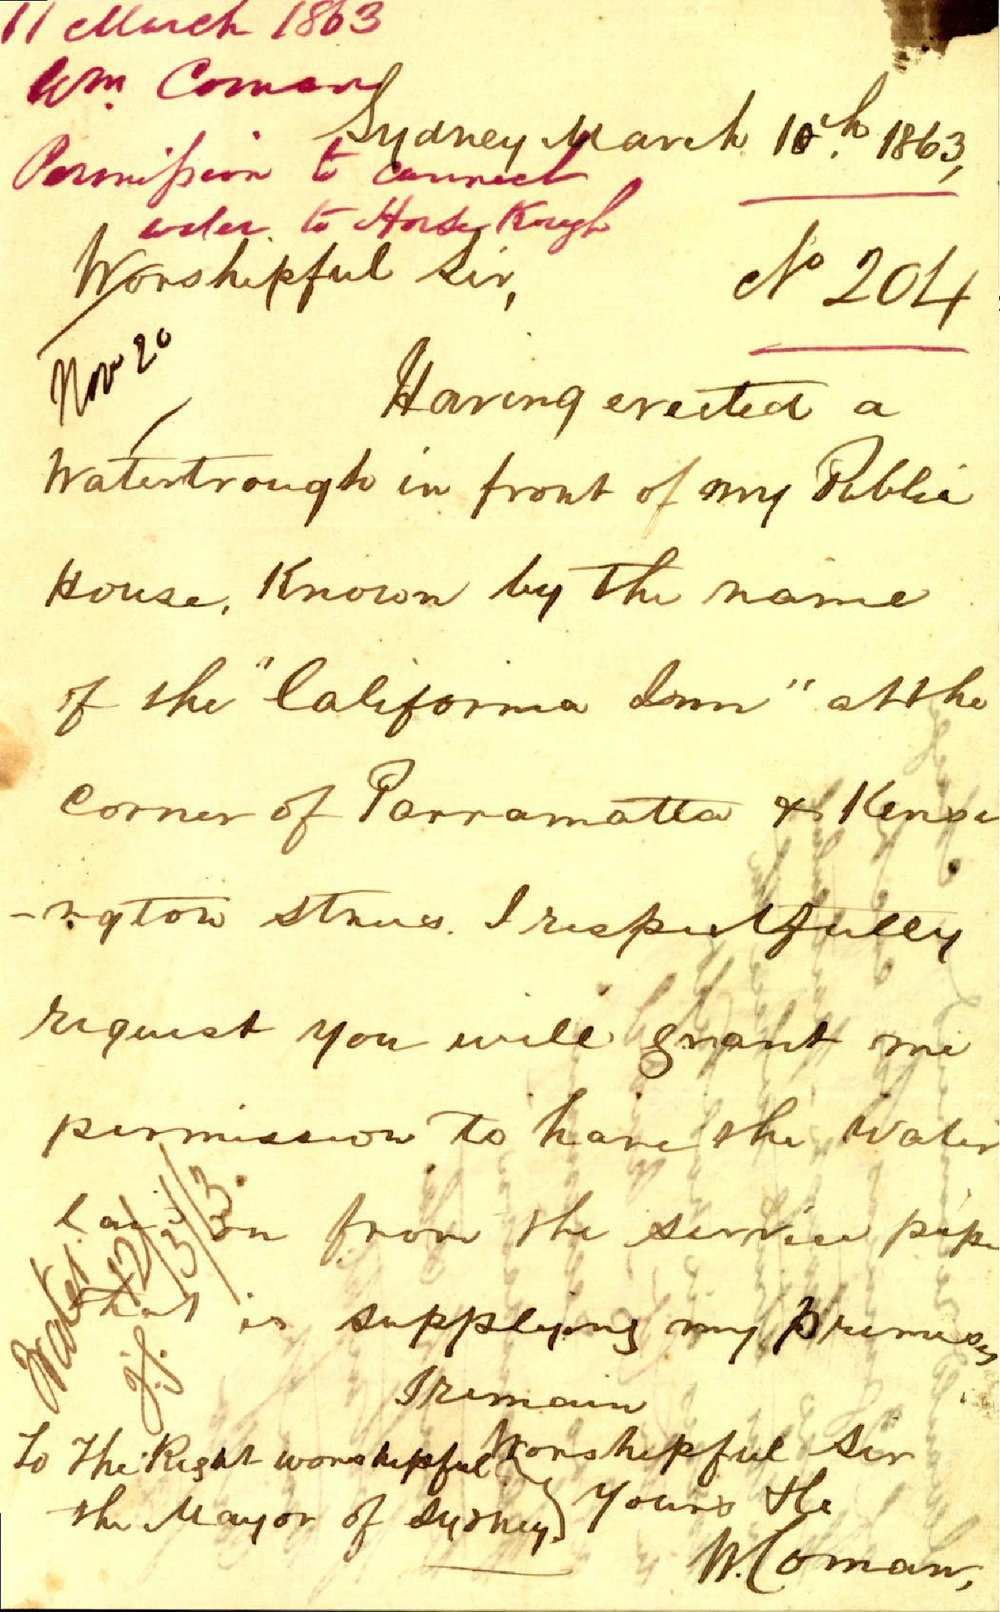 11 March 1863
Wm. Coman
Sydney March 10th 1863,
Permission to connect
water to Horse Trough
Worshipful Sir,
No 204
Nov 20
Having erected a
Watertrough in front of my Public
House, Known by the name
of the "California Inn" at the
corner of Parramatta & Kensi
-ngton streets. I respectfully
request you will grant me
permission to have the Water
laid on from the service pipe
that is supplying my premises
Water
12/3/63
J.S.
I remain
Worshipful Sir
To The Right worshipful
the Mayor of Sydney
Yours &c
W. Coman,